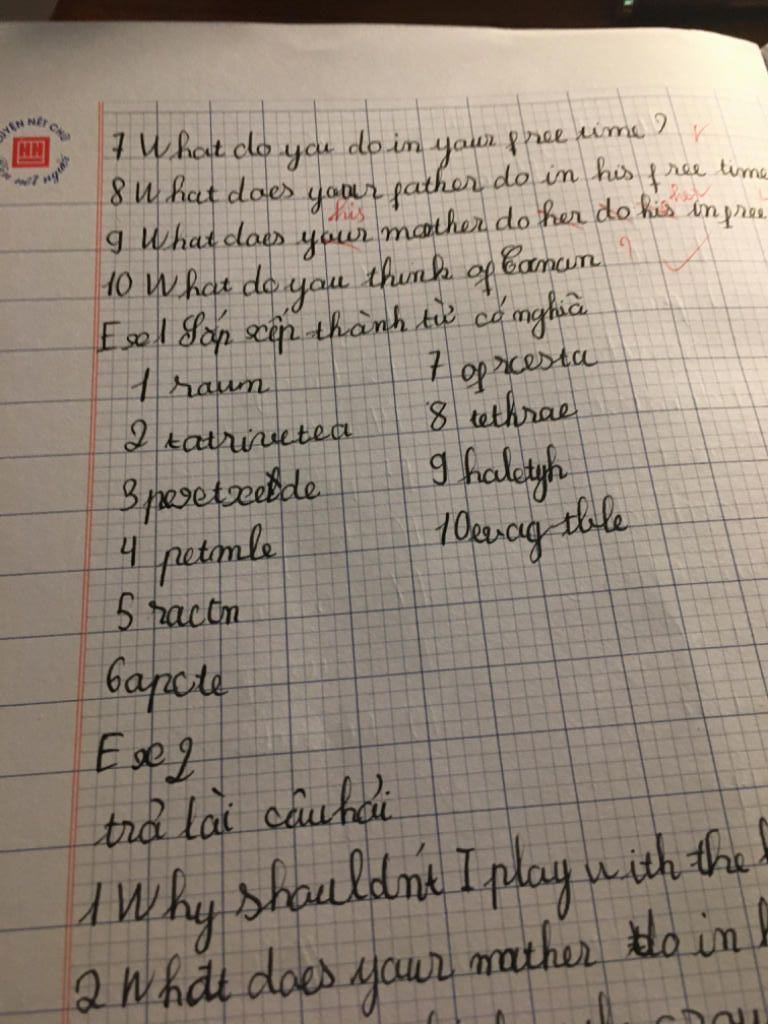 7 What do you do in your free time?
8 What does your father do in his free time
his her
9 What does your mother do her do his in free
10 What do you think of Conan ?
Exe1 Sắp xếp thành từ có nghĩa
1 raum 7 oprcesta
2 tatrivctea 8 tethrae
3 pexetxetde 9 haletyh
4 petmle 10 evag tble
5 ractn
6 apcte
Exe2
trả lời câu hỏi
1 Why shouldn't I play with the
2 What does your mother do in